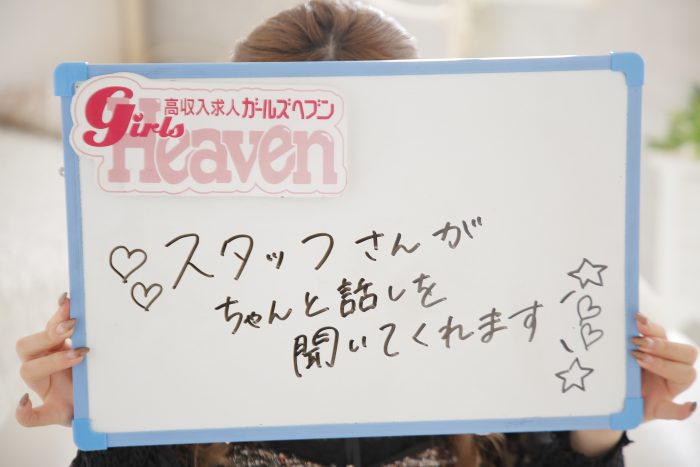 高収入求人ガールズヘブン
Girls
Heaven
スタッフさんが
ちゃんと話しを
聞いてくれます